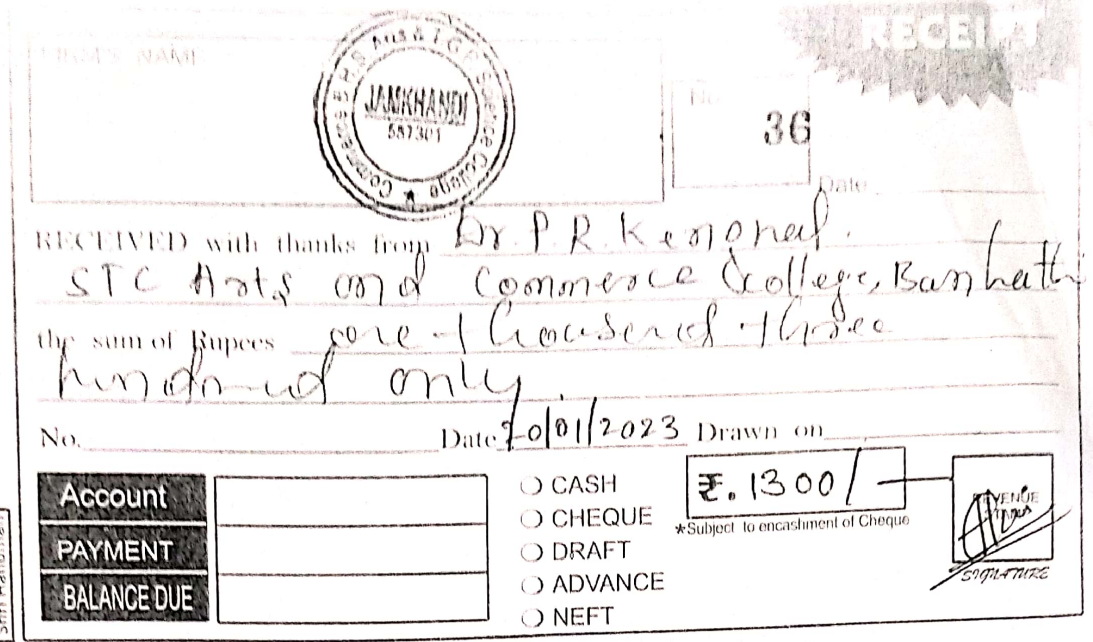 RECEIPT
FIRM'S NAME
Commerce B.H.S. Arts & T.G.P. Science College
JAMKHANDI
587301
No.
36
Date
RECEIVED with thanks from Dr. P. R. Kengnal.
STC Arts and Commerce College, Banhatti
the sum of Rupees one thousend three
hundred only.
No. Date 20/01/2023 Drawn on
Account
PAYMENT
BALANCE DUE
CASH
CHEQUE
DRAFT
ADVANCE
NEFT
₹. 1300/
*Subject to encashment of Cheque
REVENUE
SIGNATURE